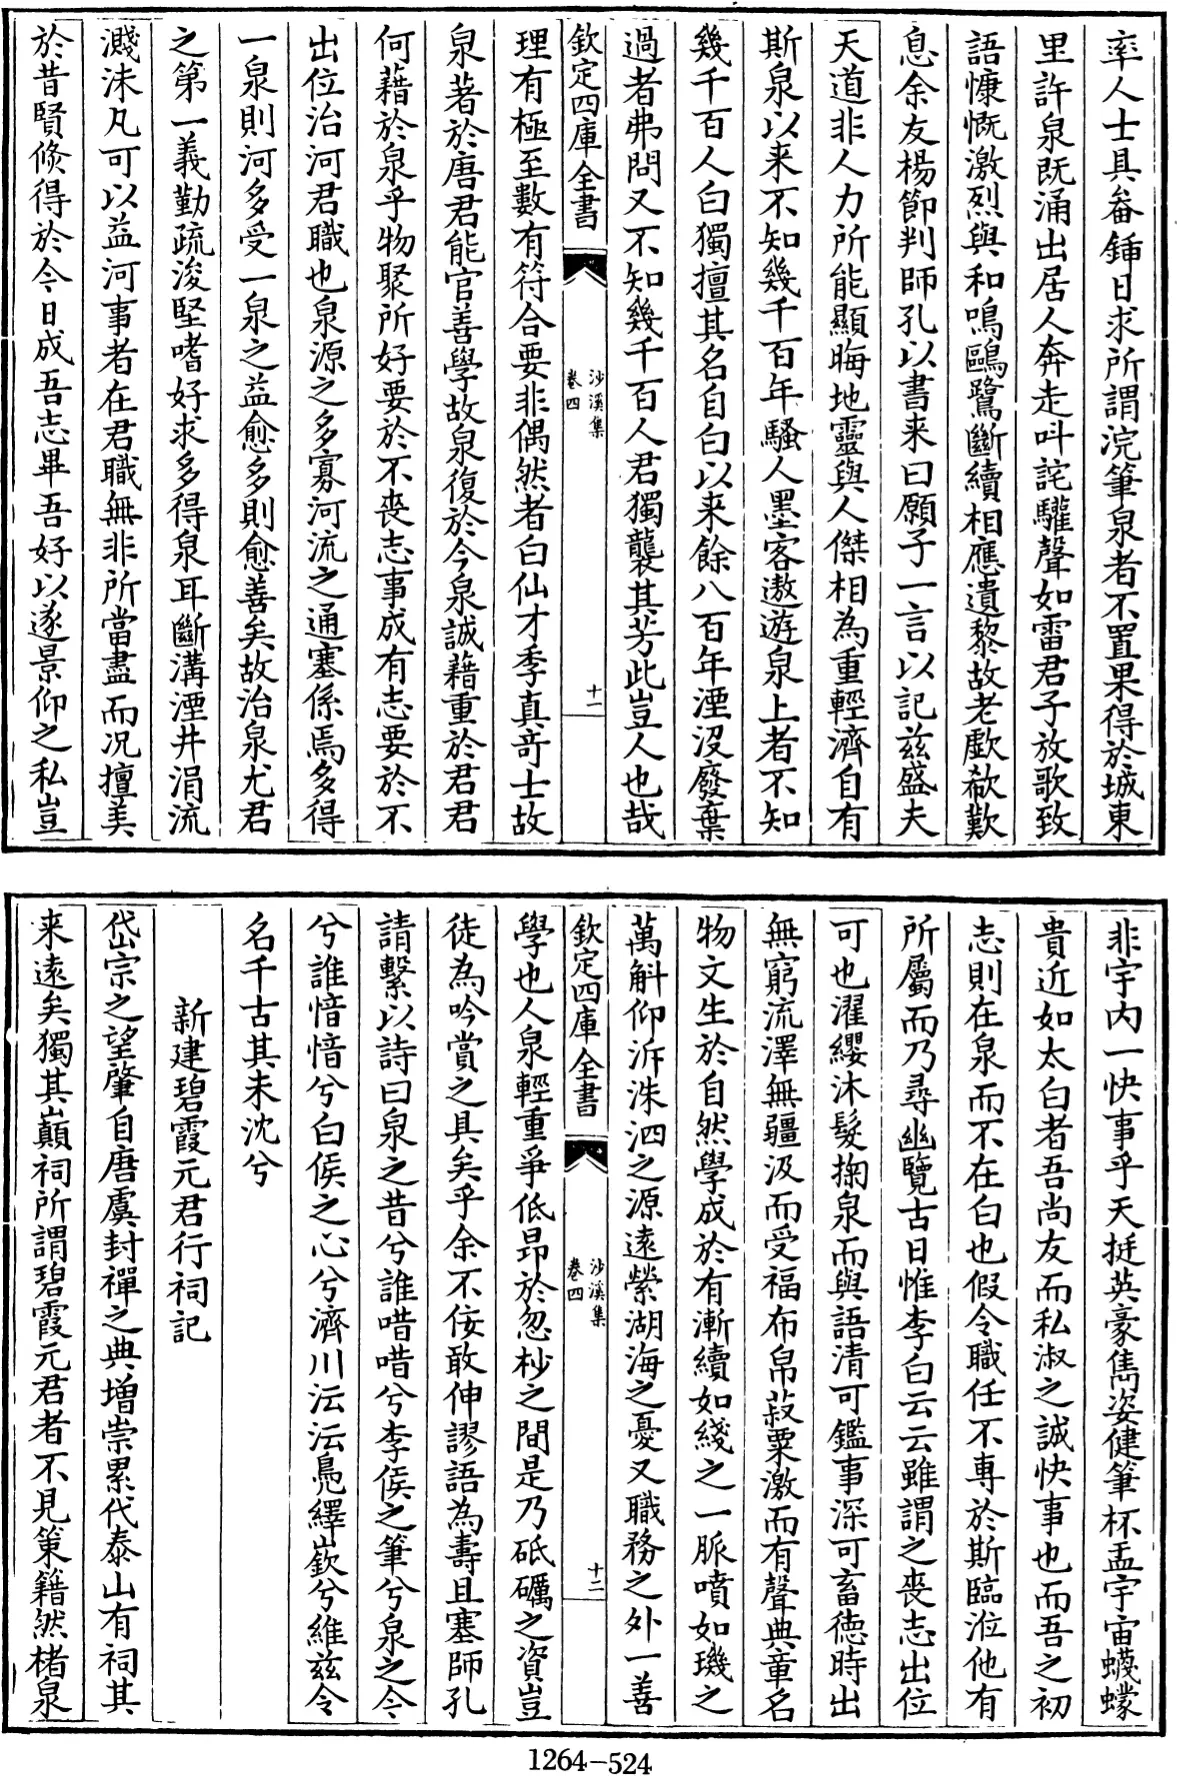 率人士具畚鍤日求所謂浣筆泉者不置果得於城東
里許泉既涌出居人奔走呌詫驩聲如雷君子放歌致
語慷慨激烈與和鳴鷗鷺斷續相應遺黎故老歔欷歎
息余友楊節判師孔以書来曰願子一言以記兹盛夫
天道非人力所能顯晦地靈與人傑相為重輕濟自有
斯泉以来不知幾千百年騷人墨客遨遊泉上者不知
幾千百人白獨擅其名自白以来餘八百年湮没廢棄
過者弗問又不知幾千百人君獨襲其芳此豈人也哉
欽定四庫全書
沙溪集
卷四
十一
理有極至數有符合要非偶然者白仙才季真竒士故
泉著於唐君能官善學故泉復於今泉誠藉重於君君
何藉於泉乎物聚所好要於不喪志事成有志要於不
出位治河君職也泉源之多寡河流之通塞係焉多得
一泉則河多受一泉之益愈多則愈善矣故治泉尤君
之第一義勤疏浚堅嗜好求多得泉耳斷溝湮井涓流
濺沫凡可以益河事者在君職無非所當盡而况擅美
於昔賢倐得於今日成吾志畢吾好以遂景仰之私豈
非宇内一快事乎天挺英豪雋姿健筆杯盂宇宙蠛蠓
貴近如太白者吾尚友而私淑之誠快事也而吾之初
志則在泉而不在白也假令職任不専於斯臨涖他有
所屬而乃尋幽覽古日惟李白云云雖謂之喪志出位
可也濯纓沐髮掬泉而與語清可鑑事深可畜徳時出
無窮流澤無疆汲而受福布帛菽粟激而有聲典章名
物文生於自然學成於有漸續如綫之一脈噴如璣之
萬斛仰泝洙泗之源遠縈湖海之憂又職務之外一善
欽定四庫全書
沙溪集
卷四
十二
學也人泉輕重爭低昂於忽杪之間是乃砥礪之資豈
徒為吟賞之具矣乎余不佞敢伸謬語為壽且塞師孔
請繫以詩曰泉之昔兮誰唶唶兮李侯之筆兮泉之今
兮誰愔愔兮白侯之心兮濟川沄沄鳬繹嶔兮維兹令
名千古其未沈兮
新建碧霞元君行祠記
岱宗之望肇自唐虞封禪之典增崇累代泰山有祠其
来遠矣獨其巔祠所謂碧霞元君者不見策籍然楮泉
1264-524